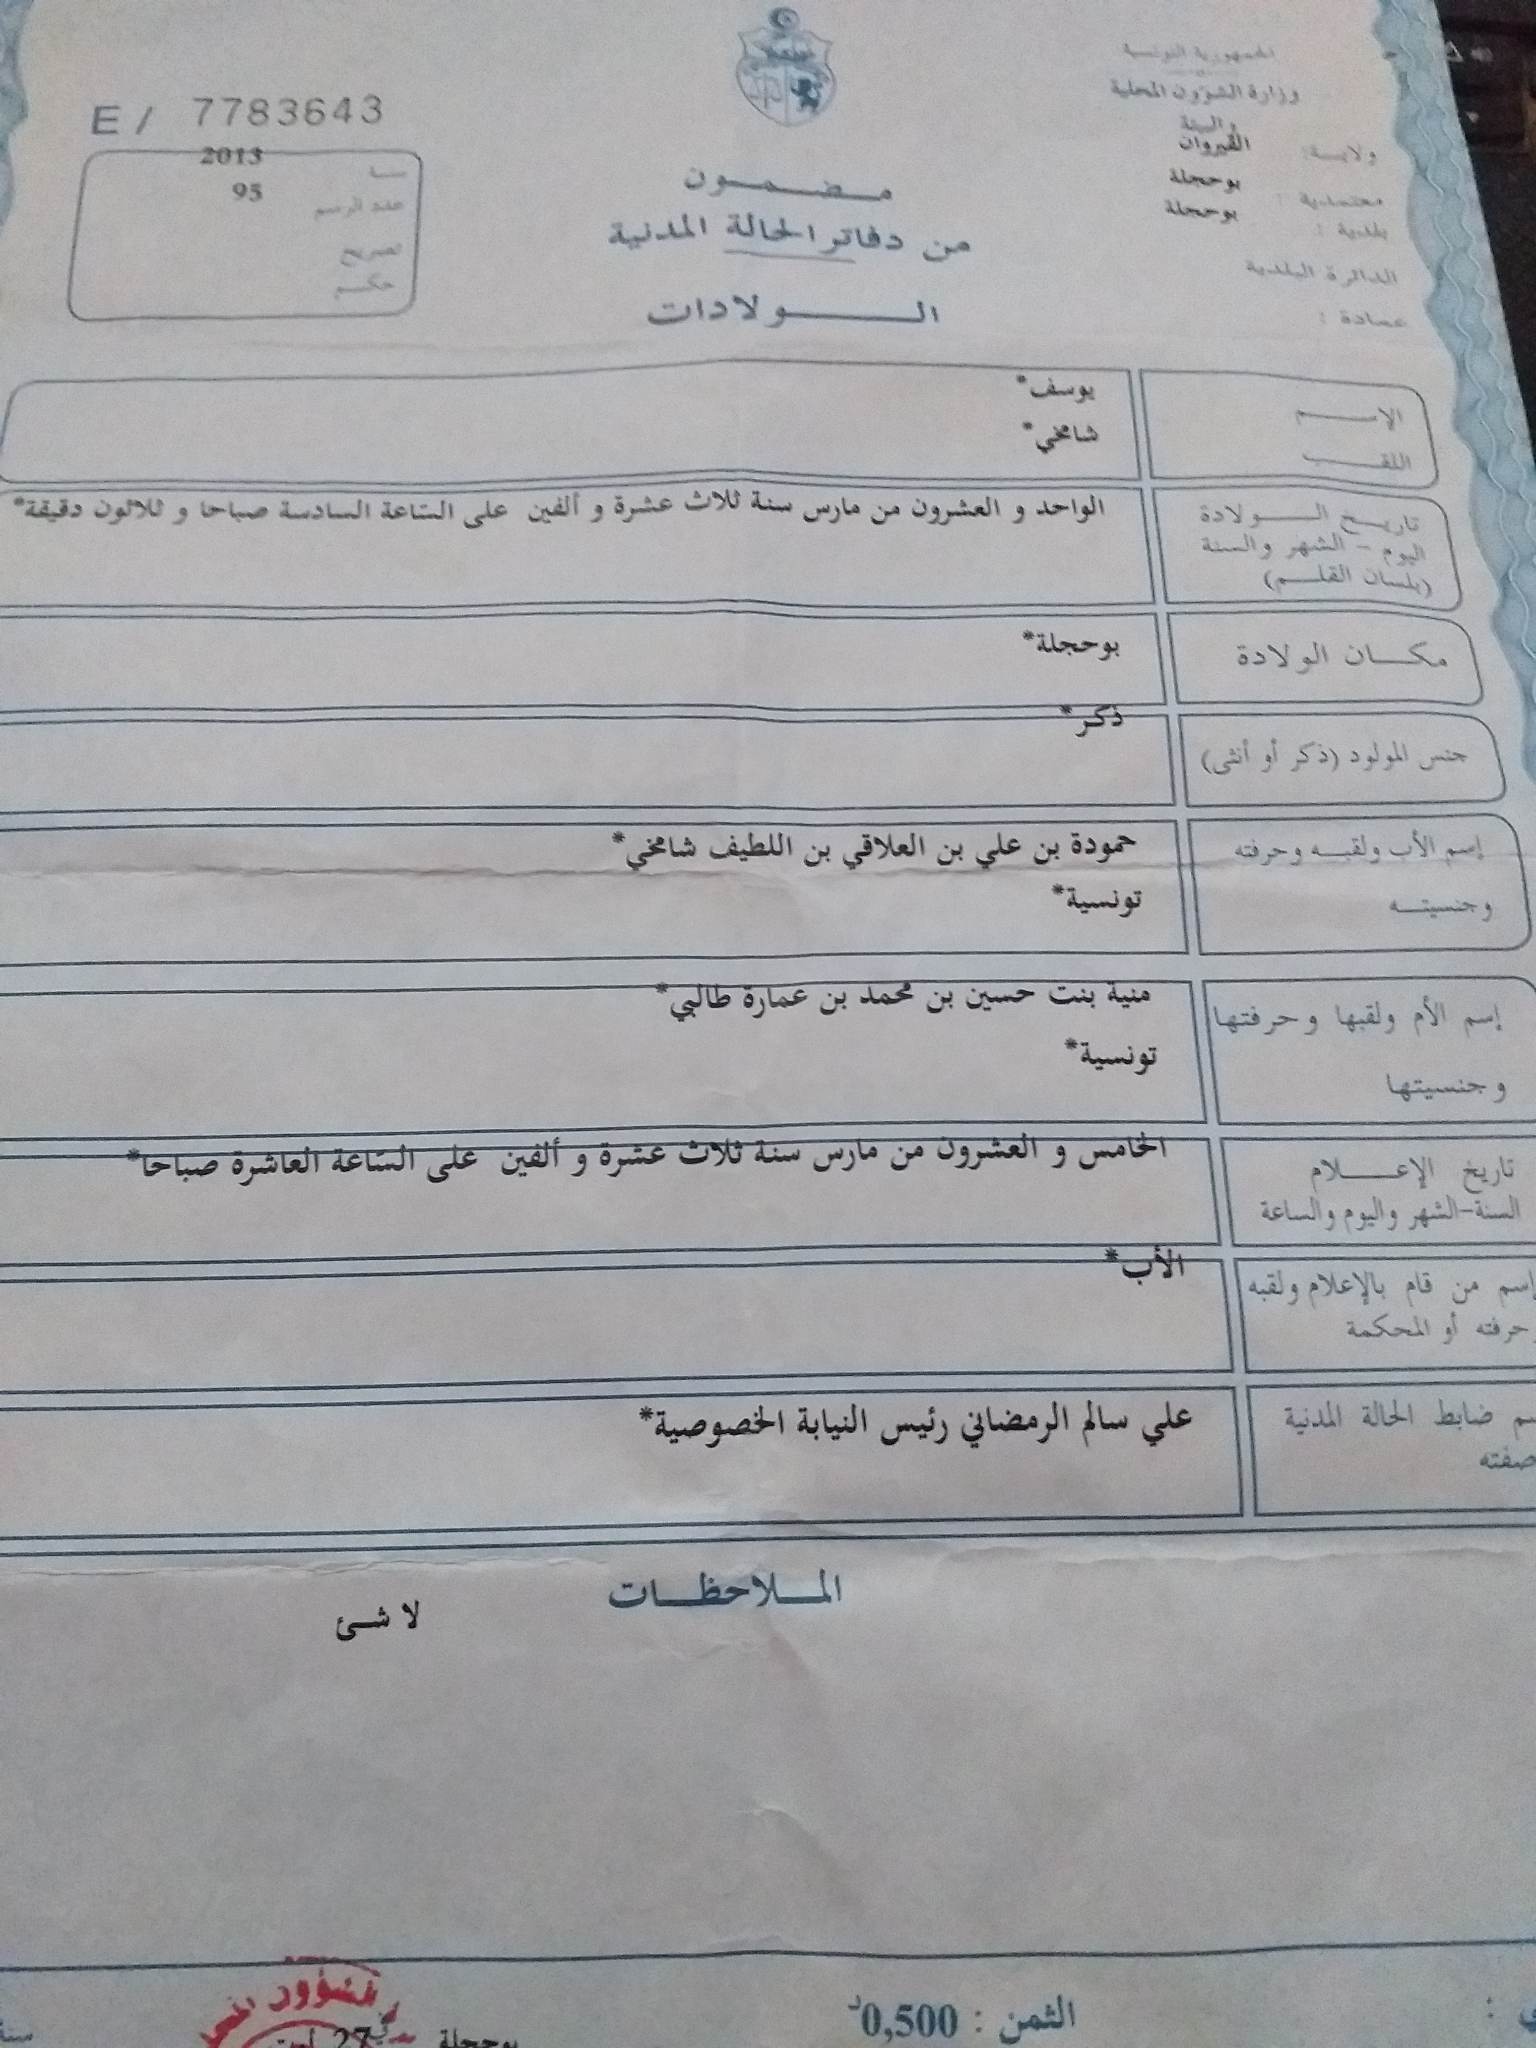 الجمهورية التونسية
وزارة الشؤون المحلية
والبيئة
ولاية: القيروان
معتمدية : بوحجلة
بلدية : بوحجلة
الدائرة البلدية
عمادة :
مضمون
من دفاتر الحالة المدنية
الولادات
E / 7783643
2013
عدد الرسم 95
تصريح
حكم
الإسم يوسف*
اللقب شامخي*
تاريخ الولادة
اليوم - الشهر والسنة
(بلسان القلم)
الواحد و العشرون من مارس سنة ثلاث عشرة و ألفين على الساعة السادسة صباحا و ثلاثون دقيقة*
مكان الولادة بوحجلة*
جنس المولود (ذكر أو أنثى) ذكر*
إسم الأب ولقبه وحرفته حمودة بن علي بن العلاقي بن اللطيف شامخي*
وجنسيته تونسية*
إسم الأم ولقبها وحرفتها منية بنت حسين بن محمد بن عمارة طالبي*
وجنسيتها تونسية*
تاريخ الإعلام
السنة-الشهر واليوم والساعة
الخامس و العشرون من مارس سنة ثلاث عشرة و ألفين على الساعة العاشرة صباحا*
إسم من قام بالإعلام ولقبه
وحرفته أو المحكمة
الأب*
ضابط الحالة المدنية
علي سالم الرمضاني رئيس النيابة الخصوصية*
الملاحظات
لا شئ
الثمن : 0,500د
بوحجلة في 27 أوت
سنة